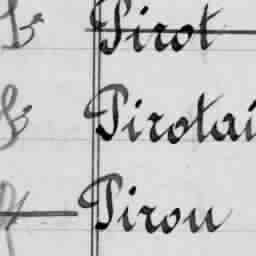 Pirot
Pirotai
Pirou